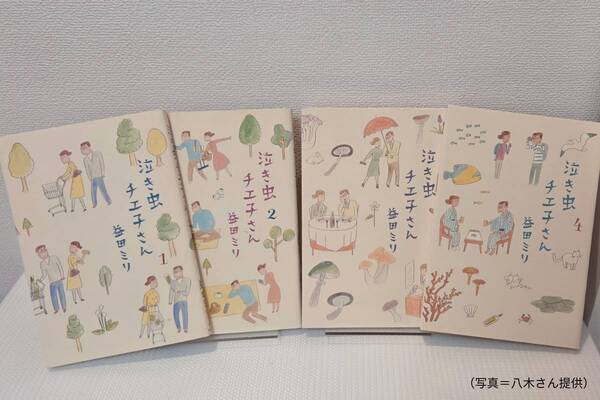 泣き虫
チエ子さん
益田ミリ
1
泣き虫
チエ子さん
益田ミリ
2
泣き虫
チエ子さん
益田ミリ
泣き虫
チエ子さん
益田ミリ
4
(写真=八木さん提供)